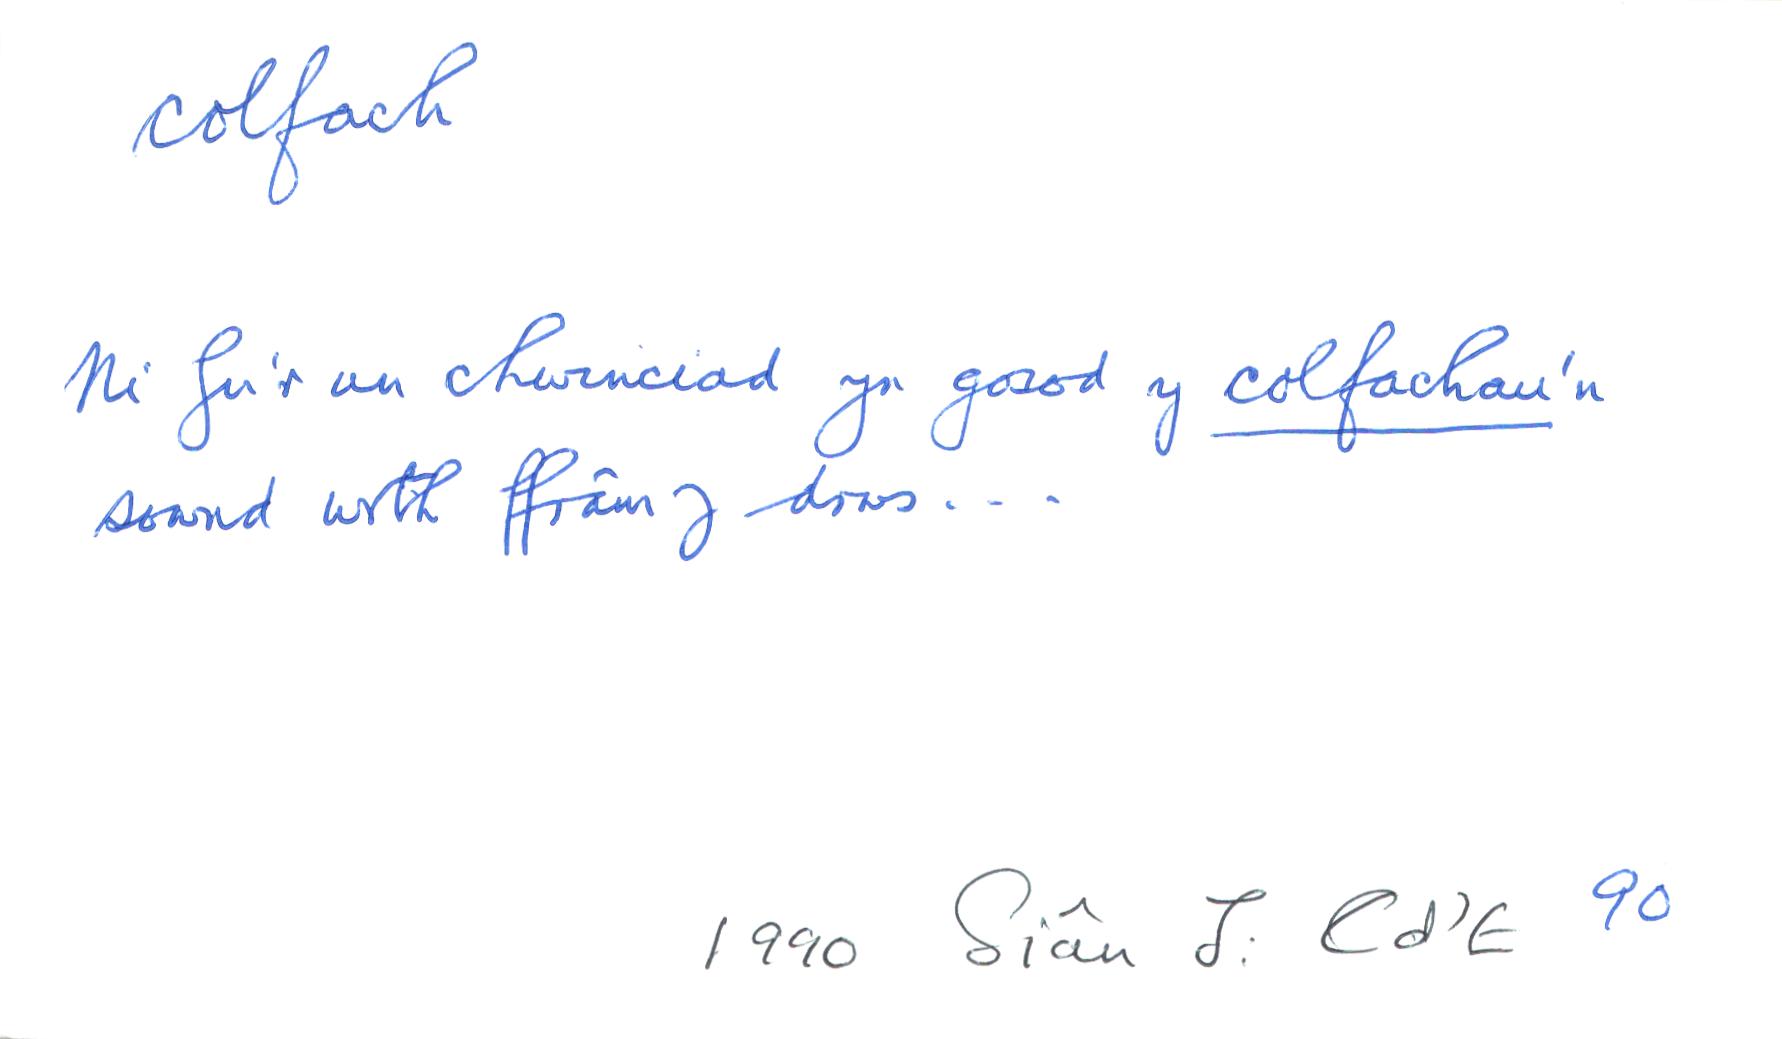 colfach
Ni fu'r un chwinciad yn gosod y colfachau'n
sownd wrth ffrâm y drws . . .
90
1990 Siân J: Cd'E